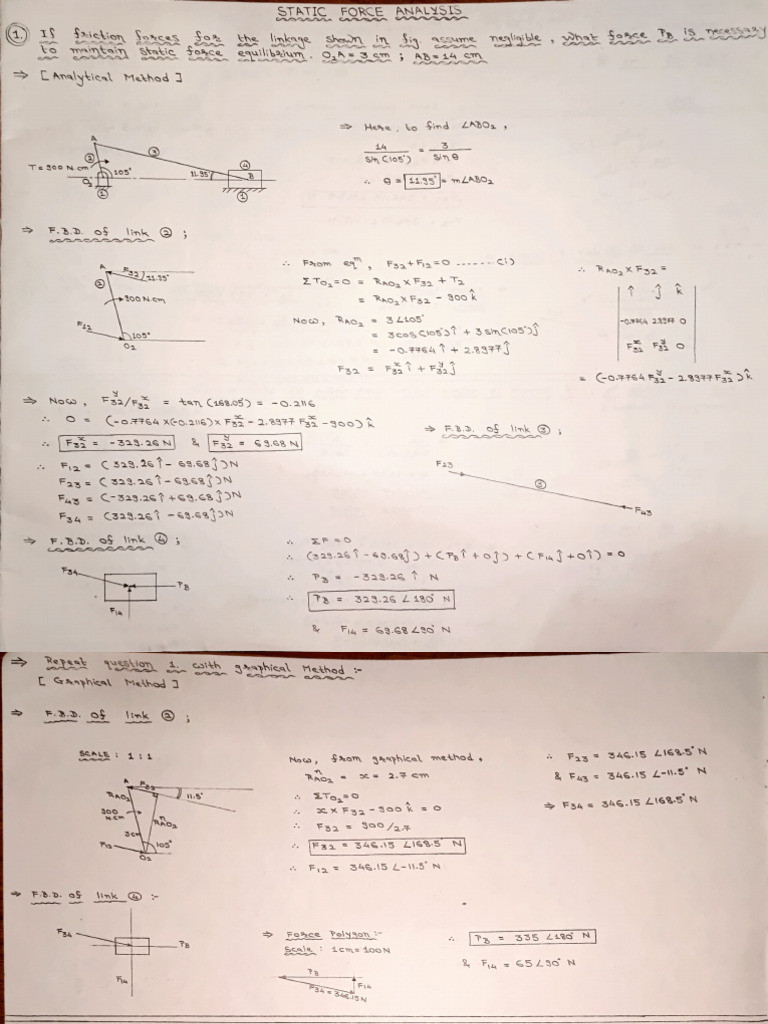 STATIC FORCE ANALYSIS
① If friction forces for the linkage shown in fig. assume negligible, what force PB is necessary
to maintain static force equilibrium. O2A = 3 cm ; AB = 14 cm
⇒ [Analytical Method]
⇒ Here, to find ∠ABO2,
14/Sin(105°) = 3/Sin θ
∴ θ = 11.95° = m∠ABO2
A
②
③
④
T = 900 N.cm
105°
11.95°
B
O2
①
①
⇒ F.B.D. of link ② ;
A
F32
11.95°
②
900 N.cm
F12
105°
O2
∴ From eqn, F32 + F12 = 0 ....... (i)
ΣTO2 = 0 = RAO2 × F32 + T2
= RAO2 × F32 - 900 k̂
Now, RAO2 = 3∠105°
= 3cos(105°)î + 3 sin(105°)ĵ
= -0.7764 î + 2.8977 ĵ
F32 = F32^x î + F32^y ĵ
∴ RAO2 × F32 =
î ĵ k̂
-0.7764 2.8977 0
F32^x F32^y 0
= (-0.7764 F32^y - 2.8977 F32^x) k̂
⇒ Now, F32^y/F32^x = tan(168.05) = -0.2116
∴ 0 = (-0.7764 × (-0.2116) × F32^x - 2.8977 F32^x - 900) k̂
∴ F32^x = -329.26 N & F32^y = 69.68 N
∴ F12 = (329.26 î - 69.68 ĵ) N
F23 = (329.26 î - 69.68 ĵ) N
F43 = (-329.26 î + 69.68 ĵ) N
F34 = (329.26 î - 69.68 ĵ) N
⇒ F.B.D. of link ③ ;
F23
③
F43
⇒ F.B.D. of link ④ ;
F34
PB
F14
∴ ΣF = 0
∴ (329.26 î - 69.68 ĵ) + (PB î + 0 ĵ) + (F14 ĵ + 0 î) = 0
∴ PB = -329.26 î N
∴ PB = 329.26 ∠180° N
& F14 = 69.68 ∠90° N
⇒ Repeat question 1. with graphical Method :-
[Graphical Method]
⇒ F.B.D. of link ② ;
SCALE : 1:1
A
F32
11.5°
RAO2
900 N.cm
R^n AO2
3cm
F12
105°
O2
Now, from graphical method,
R^n AO2 = x = 2.7 cm
∴ ΣTO2 = 0
∴ x × F32 - 900 k̂ = 0
∴ F32 = 900/2.7
∴ F32 = 346.15 ∠168.5° N
∴ F12 = 346.15 ∠-11.5° N
∴ F23 = 346.15 ∠168.5° N
& F43 = 346.15 ∠-11.5° N
⇒ F34 = 346.15 ∠168.5° N
⇒ F.B.D. of link ④ :-
F34
PB
F14
⇒ Force Polygon :-
Scale : 1cm = 100N
PB
F14
F34 = 346.15N
∴ PB = 335 ∠180° N
& F14 = 65∠90° N